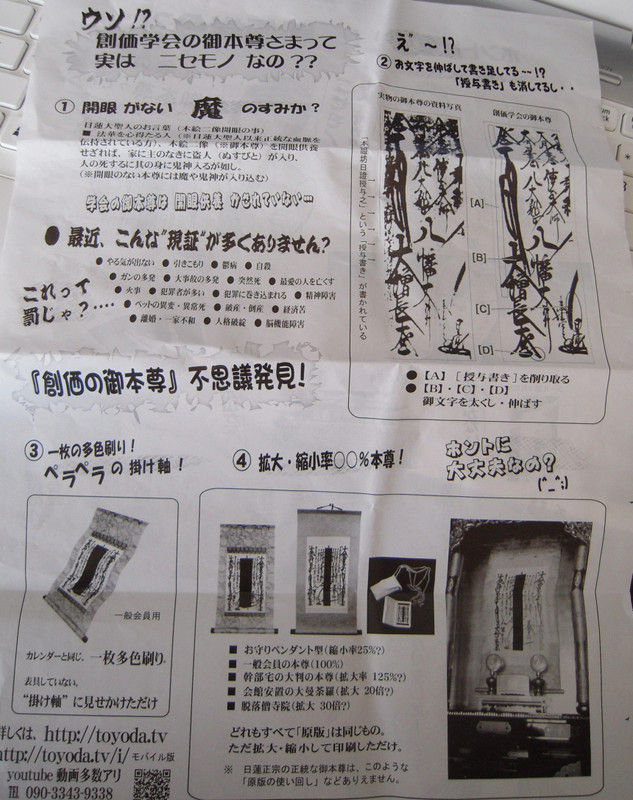 ウソ!?
創価学会の御本尊さまって
実は ニセモノ なの??
① 開眼 がない 魔 のすみか?
日蓮大聖人のお言葉(木絵二像開眼の事)
■ 法華を心得たる人(※日蓮大聖人以来正統な血脈を
伝持されている方)、木絵二像(※御本尊)を開眼供養
せざれば、家に主のなきに盗人(ぬすびと)が入り、
人の死するに其の身に鬼神入るが如し。
(※開眼のない本尊には魔や鬼神が入り込む)
学会の御本尊は 開眼供養 がされていない…
● 最近、こんな"現証"が多くありません?
● やる気が出ない ● 引きこもり ● 鬱病 ● 自殺
● ガンの多発 ● 大事故の多発 ● 突然死 ● 最愛の人を亡くす
● 火事 ● 犯罪者が多い ● 犯罪に巻き込まれる ● 精神障害
● ペットの異変・異常死 ● 破産・倒産 ● 経済苦
● 離婚・一家不和 ● 人格破綻 ● 脳機能障害
これって
罰じゃ?‥‥
え゛~!?
② お文字を伸ばして書き足してる~!?
「授与書き」も消してるし・・
実物の御本尊の資料写真
創価学会の御本尊
[A]
[B]
[C]
[D]
● 【A】 [授与書き]を削り取る
● 【B】・【C】・【D】
御文字を太くし・伸ばす
『創価の御本尊』不思議発見!
③ 一枚の多色刷り!
ペラペラ の 掛け軸!
一般会員用
カレンダーと同じ、一枚多色刷り。
表具していない、
"掛け軸"に見せかけただけ
④ 拡大・縮小率○○%本尊!
ホントに
大丈夫なの?
(^_^;)
■ お守りペンダント型(縮小率25%?)
■ 一般会員の本尊(100%)
■ 幹部宅の大判の本尊(拡大率 125%?)
■ 会館安置の大曼荼羅(拡大 20倍?)
■ 脱落僧寺院(拡大 30倍?)
どれもすべて「原版」は同じもの。
ただ拡大・縮小して印刷しただけ。
※ 日蓮正宗の正統な御本尊は、このような
「原版の使い回し」などありえません。
詳しくは、http://toyoda.tv
http://toyoda.tv/i/ モバイル版
youtube 動画多数アリ
℡ 090-3343-9338